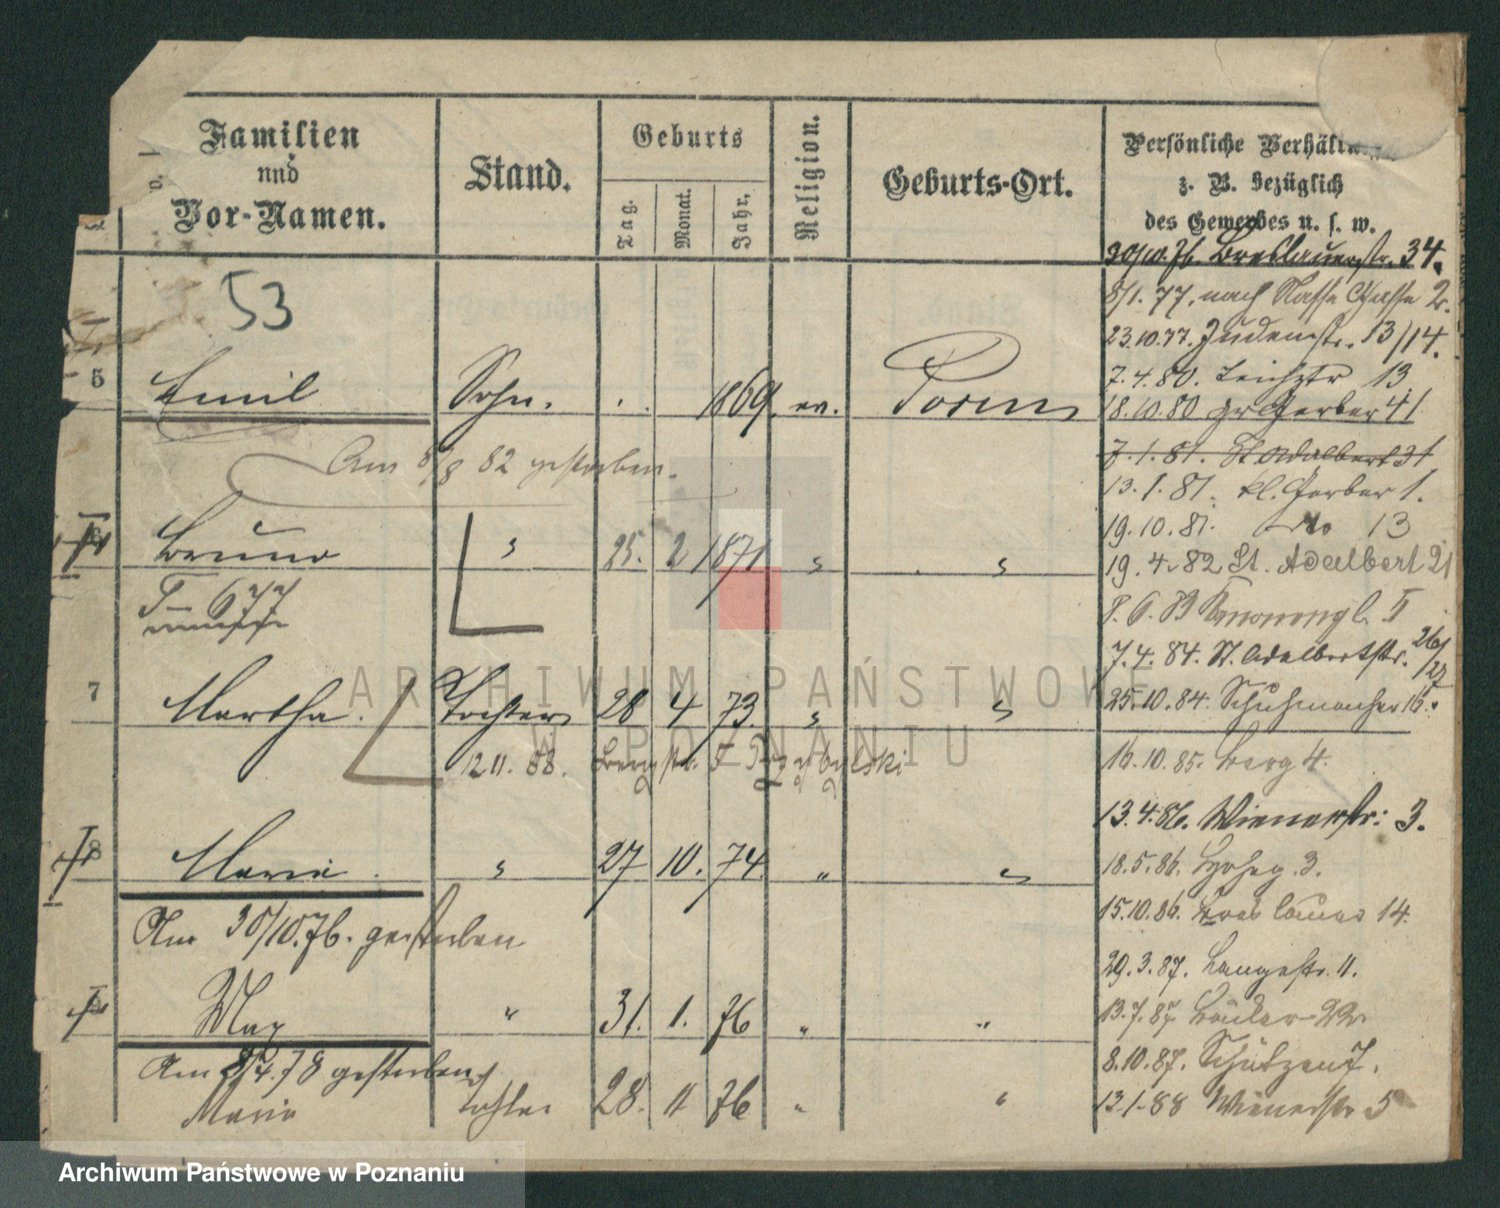 Familien
und
Vor-Namen.
Stand.
Geburts
Tag.
Monat.
Jahr.
Religion.
Geburts-Ort.
Persönliche Verhältn
z. B. bezüglich
des Gewerbes u. s. w.
53
5 Emil Sohn. 1869. ev. Posen
Am 8/8 82 gestorben.
6 Bruno " 25. 2 1871 " "
7 Martha. Tochter 28 4 73. " "
12 11. 88. Berg str. 5 Przybylski
8 Marie. " 27 10. 74. " "
Am 30/10.76. gestorben
Max " 31. 1. 76 " "
Am 4. 78 gestorben
Marie Tochter 28. 11 76 " "
30/10.76. Breslauerstr. 34.
8/1. 77. nach Nasse Gasse 2.
23.10.77. Judenstr. 13/14.
7. 4. 80. Teichstr 13
18. 10. 80 gr Gerber 41
7. 1. 81. St Adalbert 31
13. 1. 81. kl. Gerber 1.
19. 10. 81. do 13
19. 4. 82 St. Adalbert 21
8. 6. 83 Kanonenpl. 5
7. 4. 84. St. Adalbertstr. 26/27
25. 10. 84. Schuhmacher 16.
16. 10. 85. Berg 4.
13. 4. 86. Wienerstr: 3.
18. 5. 86. 3.
15. 10. 86. Breslauer 14.
29. 3. 87. Langestr. 11.
13. 7. 87. Bäcker 22
8. 10. 87. Schützen 7.
13. 1. 88 Wienerstr 5
ARCHIWUM PAŃSTWOWE
W POZNANIU
Archiwum Państwowe w Poznaniu